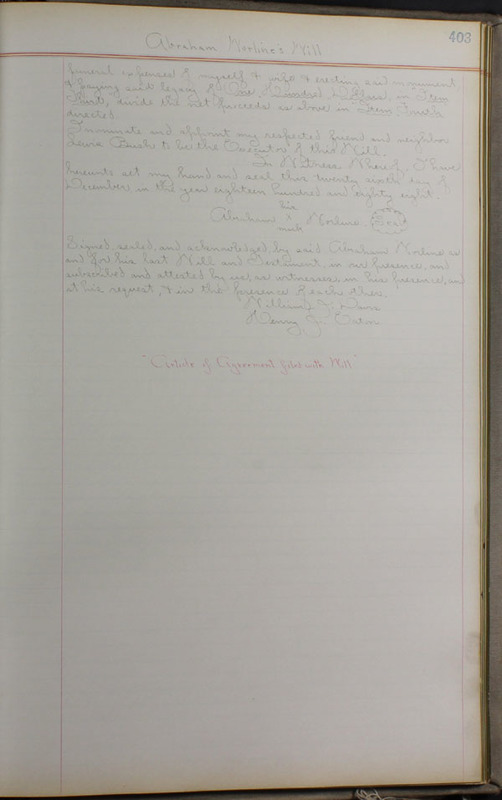 403
Abraham Worline's Will
funeral expenses of myself & wife & erecting said monument
& paying said legacy of One Hundred Dollars, in Item
Third, divide the net proceeds as above in Item Fourth
directed.
I nominate and appoint my respected friend and neighbor
Bush to be the Executor of this Will.
In Witness Whereof, I have
hereunto set my hand and seal this twenty sixth day of
December in the year eighteen hundred and eighty eight.
his
Abraham x Worline. Seal
mark
Signed, sealed, and acknowledged, by said Abraham Worline as
and for his last Will and Testament, in our presence, and
subscribed and attested by us, as witnesses, in his presence, and
at his request, & in the presence of each other.
William
Henry J. Eaton
"Article of Agreement filed with Will"